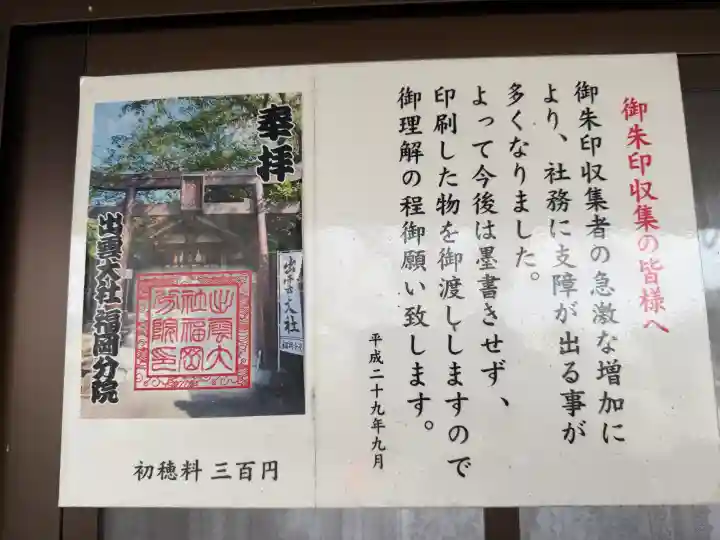 御朱印収集の皆様へ
御朱印収集者の急激な増加に
より、社務に支障が出る事が
多くなりました。
よって今後は墨書きせず、
印刷した物を御渡ししますので
御理解の程御願い致します。
平成二十九年九月
奉拝
出雲大社
出雲大社福岡分院
出雲大
社福岡
分院印
初穂料 三百円